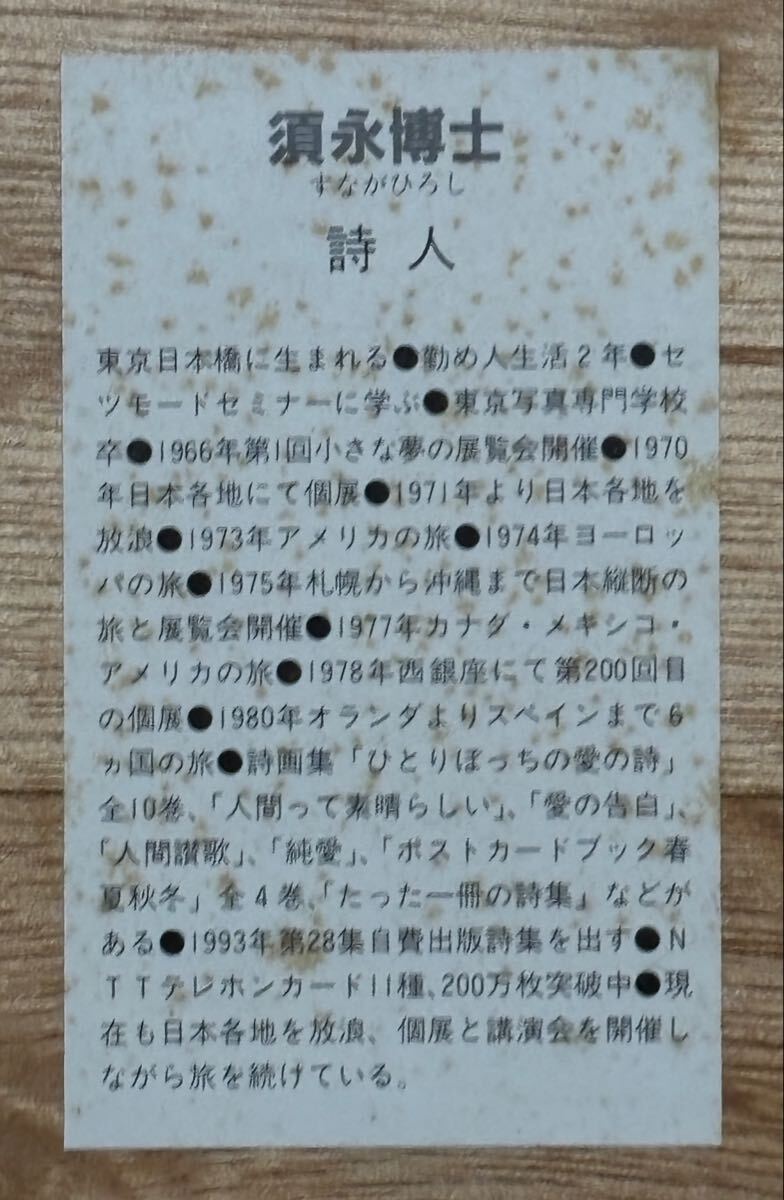 須永博士
すながひろし
詩人
東京日本橋に生まれる●勤め人生活2年●セ
ツモードセミナーに学ぶ●東京写真専門学校
卒●1966年第1回小さな夢の展覧会開催●1970
年日本各地にて個展●1971年より日本各地を
放浪●1973年アメリカの旅●1974年ヨーロッ
パの旅●1975年札幌から沖縄まで日本縦断の
旅と展覧会開催●1977年カナダ・メキシコ・
アメリカの旅●1978年西銀座にて第200回目
の個展●1980年オランダよりスペインまで6
ヵ国の旅●詩画集「ひとりぼっちの愛の詩」
全10巻、「人間って素晴らしい」、「愛の告白」、
「人間讃歌」、「純愛」、「ポストカードブック春
夏秋冬」全4巻、「たった一冊の詩集」などが
ある●1993年第28集自費出版詩集を出す●N
TTテレホンカード11種、200万枚突破中●現
在も日本各地を放浪、個展と講演会を開催し
ながら旅を続けている。